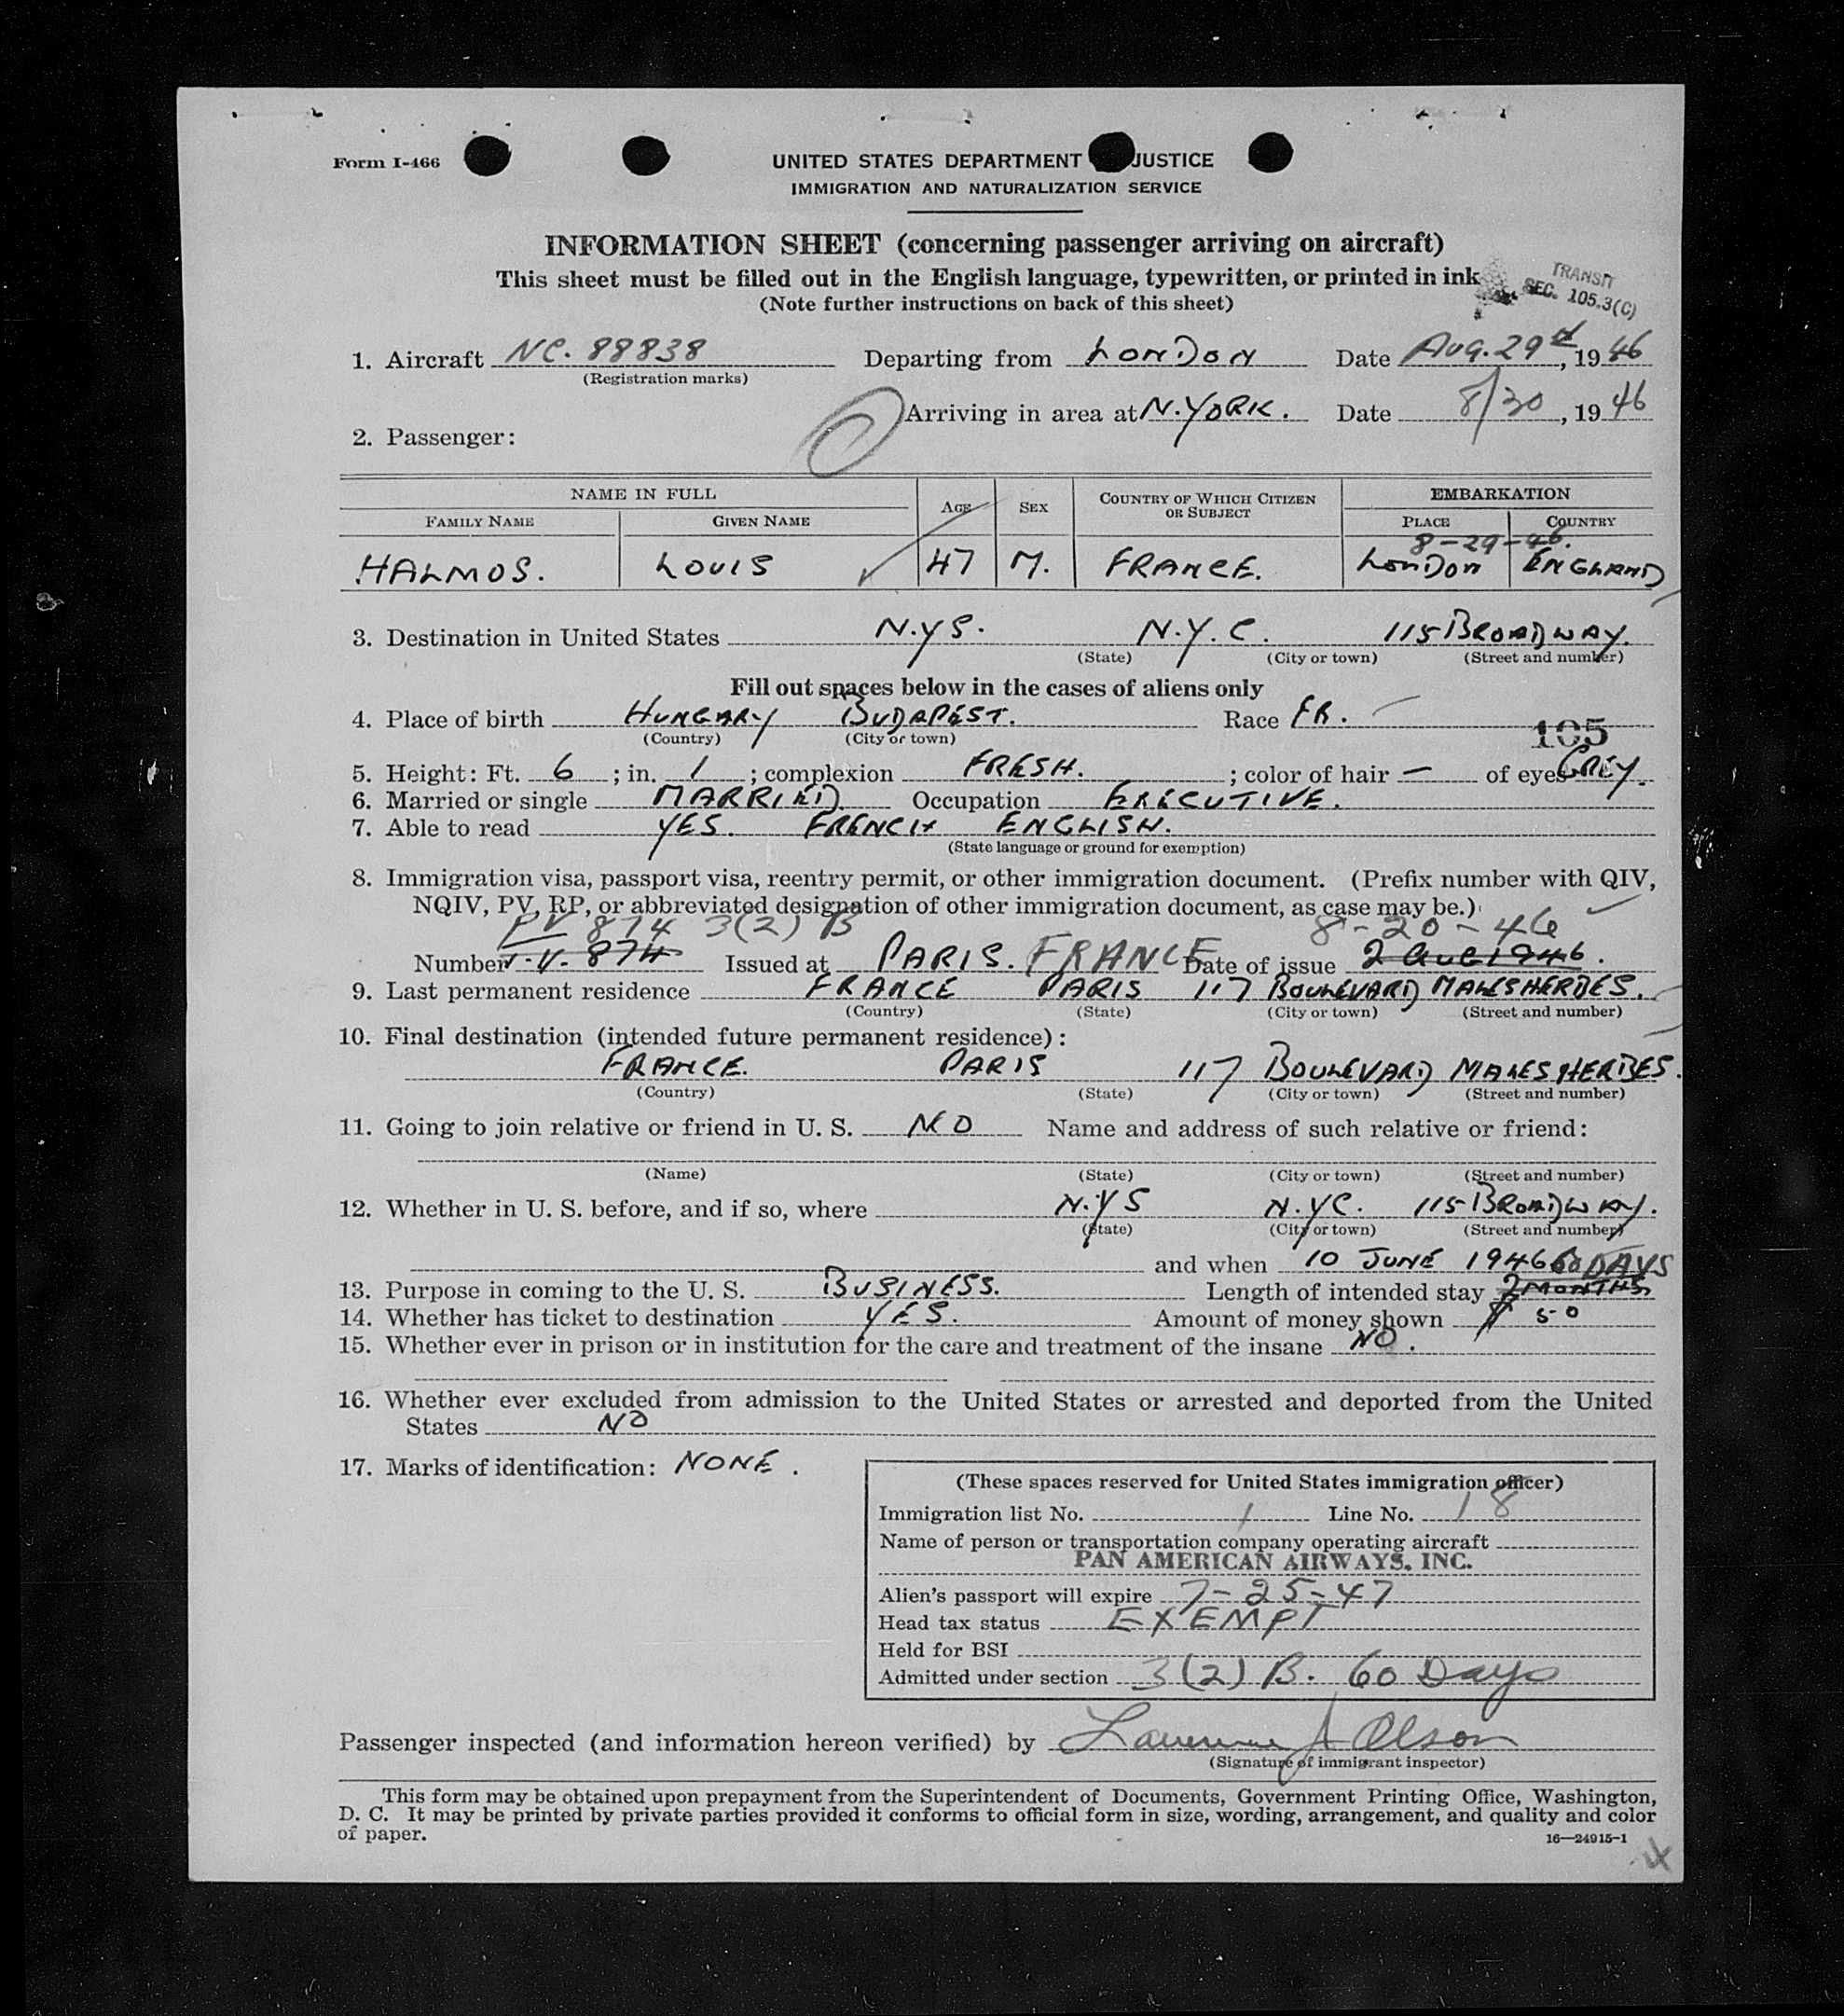 Form I-466
UNITED STATES DEPARTMENT JUSTICE
IMMIGRATION AND NATURALIZATION SERVICE
INFORMATION SHEET (concerning passenger arriving on aircraft)
This sheet must be filled out in the English language, typewritten, or printed in ink
(Note further instructions on back of this sheet)
TRANSIT
SEC. 105.3(C)
1. Aircraft NC. 88838 Departing from LONDON Date AUG. 29th, 1946
(Registration marks)
Arriving in area at N. YORK. Date 8/30, 1946
2. Passenger:
NAME IN FULL AGE SEX COUNTRY OF WHICH CITIZEN OR SUBJECT EMBARKATION
FAMILY NAME GIVEN NAME PLACE COUNTRY
8-29-46.
HALMOS. LOUIS 47 M. FRANCE. LONDON ENGLAND
3. Destination in United States N.Y S. N.Y.C. 115 BROADWAY.
(State) (City or town) (Street and number)
Fill out spaces below in the cases of aliens only
4. Place of birth HUNGARY BUDAPEST. Race FR.
(Country) (City or town)
105
5. Height: Ft. 6 ; in. 1 ; complexion FRESH. ; color of hair — of eyes GREY.
6. Married or single MARRIED. Occupation EXECUTIVE.
7. Able to read YES. FRENCH ENGLISH.
(State language or ground for exemption)
8. Immigration visa, passport visa, reentry permit, or other immigration document. (Prefix number with QIV,
NQIV, PV, RP, or abbreviated designation of other immigration document, as case may be.)
PV 874 3(2) B 8-20-46
Number T.V. 874 Issued at PARIS. FRANCE Date of issue 2 AUG 1946.
9. Last permanent residence FRANCE PARIS 117 BOULEVARD MALESHERBES.
(Country) (State) (City or town) (Street and number)
10. Final destination (intended future permanent residence):
FRANCE. PARIS 117 BOULEVARD MALESHERBES.
(Country) (State) (City or town) (Street and number)
11. Going to join relative or friend in U. S. NO Name and address of such relative or friend:
(Name) (State) (City or town) (Street and number)
12. Whether in U. S. before, and if so, where N.Y S N.YC. 115 BROADWAY.
(State) (City or town) (Street and number)
and when 10 JUNE 1946 60 DAYS
13. Purpose in coming to the U. S. BUSINESS. Length of intended stay 2 MONTHS
14. Whether has ticket to destination YES. Amount of money shown $ 50
15. Whether ever in prison or in institution for the care and treatment of the insane NO.
16. Whether ever excluded from admission to the United States or arrested and deported from the United
States NO
17. Marks of identification: NONE.
(These spaces reserved for United States immigration officer)
Immigration list No. 1 Line No. 18
Name of person or transportation company operating aircraft
PAN AMERICAN AIRWAYS, INC.
Alien's passport will expire 7-25-47
Head tax status EXEMPT
Held for BSI
Admitted under section 3(2) B. 60 Days
Passenger inspected (and information hereon verified) by Lawrence A Olson
(Signature of immigrant inspector)
This form may be obtained upon prepayment from the Superintendent of Documents, Government Printing Office, Washington,
D. C. It may be printed by private parties provided it conforms to official form in size, wording, arrangement, and quality and color
of paper.
16—24915-1